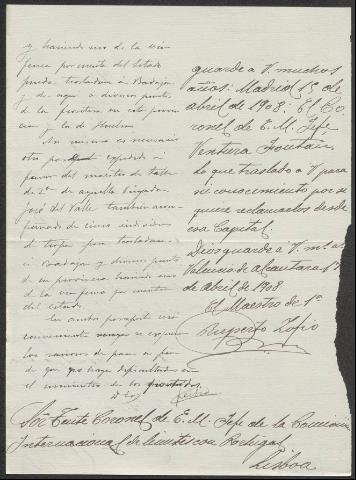 y haciendo uso de la via
ferrea por cuenta del Estado
pueda trasladarse á Badajoz
y de aqui á diversos puntos
de la frontera en esta provin
cia y la de Huelva.
Asi mismo es necesario
otro expedido á
favor del maestro de taller
de 2ª de aquella Brigada
José del Valle tambien acom
pañado de cinco individuos
de tropa para trasladarse
á Badajoz y diversos puntos
de su provincia haciendo uso
de la via ferrea por cuenta
del Estado.
En ambos pasaportes
conveniente se
los de
que no haya dificultades en
el suministro de los
Dios
guarde á V. muchos
años: Madrid 15 de
abril de 1908: El Co
ronel de E. M. Jefe
Ventura Fontán
Lo que traslado á V. para
su conocimiento por se
quiere reclamarlos desde
esa Capital.
Dios guarde á V. m.s a.s
Valencia de Alcantara 17
de abril de 1908
El Maestro de 1ª
Ruperto Zofío
Sor. Tente. Coronel de E. M. Jefe de la Comision
Internacional de limites con Portugal
Lisboa